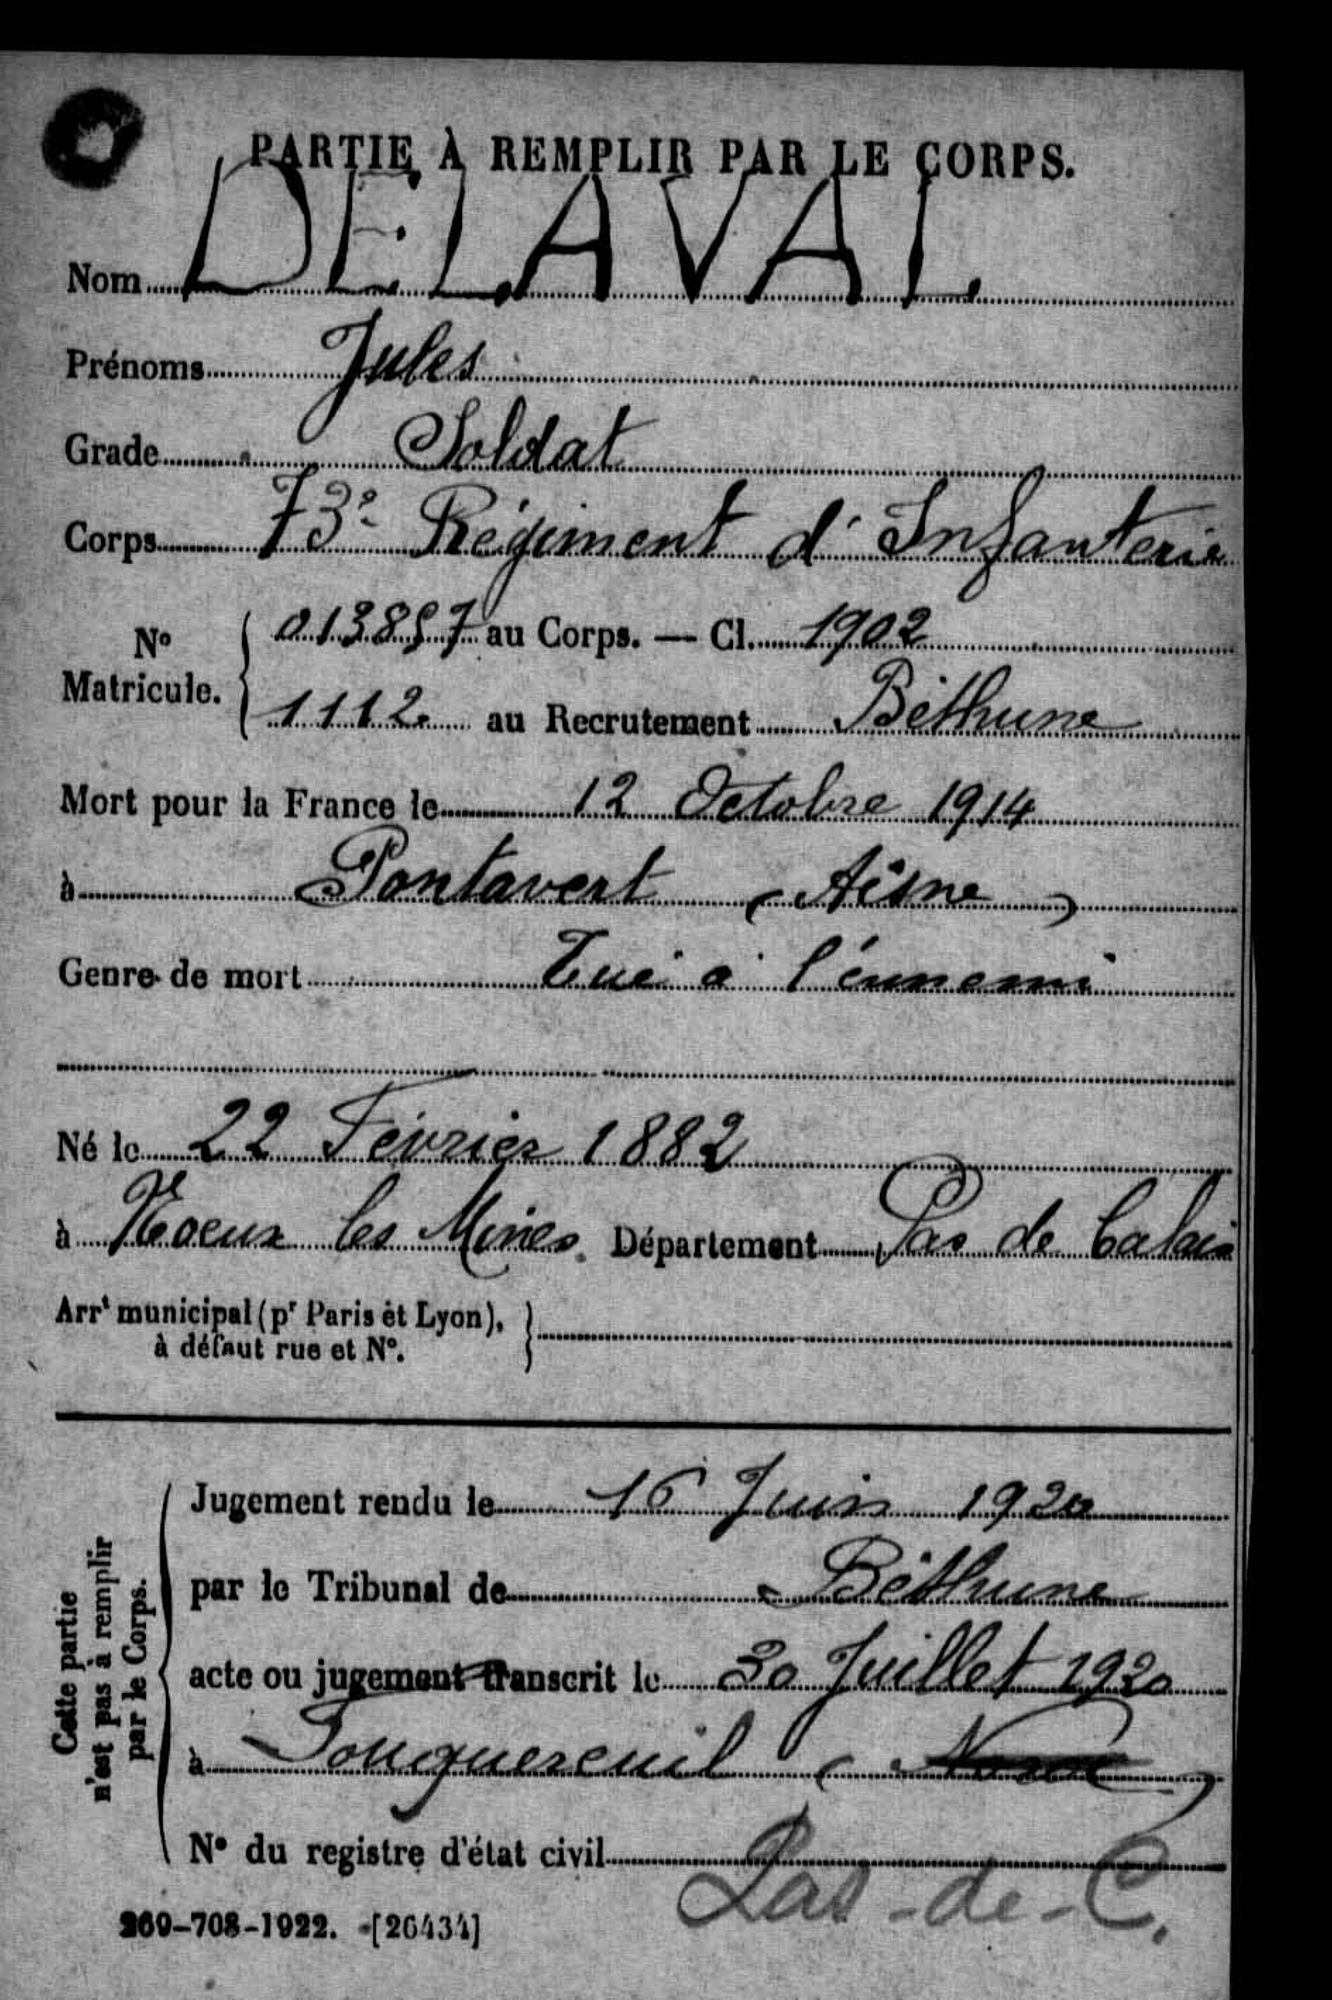 PARTIE À REMPLIR PAR LE CORPS.
Nom DELAVAL
Prénoms Jules
Grade Soldat
Corps 73e Régiment d'Infanterie
N° Matricule. { 013857 au Corps. — Cl. 1902
1112 au Recrutement Béthune
Mort pour la France le 12 Octobre 1914
à Pontavert (Aisne)
Genre de mort Tué à l'ennemi
Né le 22 Février 1882
à Noeux les Mines Département Pas de Calais
Arrt municipal (pr Paris et Lyon), }
à défaut rue et N°.
Cette partie
n'est pas à remplir
par le Corps.
Jugement rendu le 16 Juin 1920
par le Tribunal de Béthune
acte ou jugement transcrit le 30 Juillet 1920
à Fouquereuil (Nord)
N° du registre d'état civil
Pas-de-C.
269-708-1922. [26434]